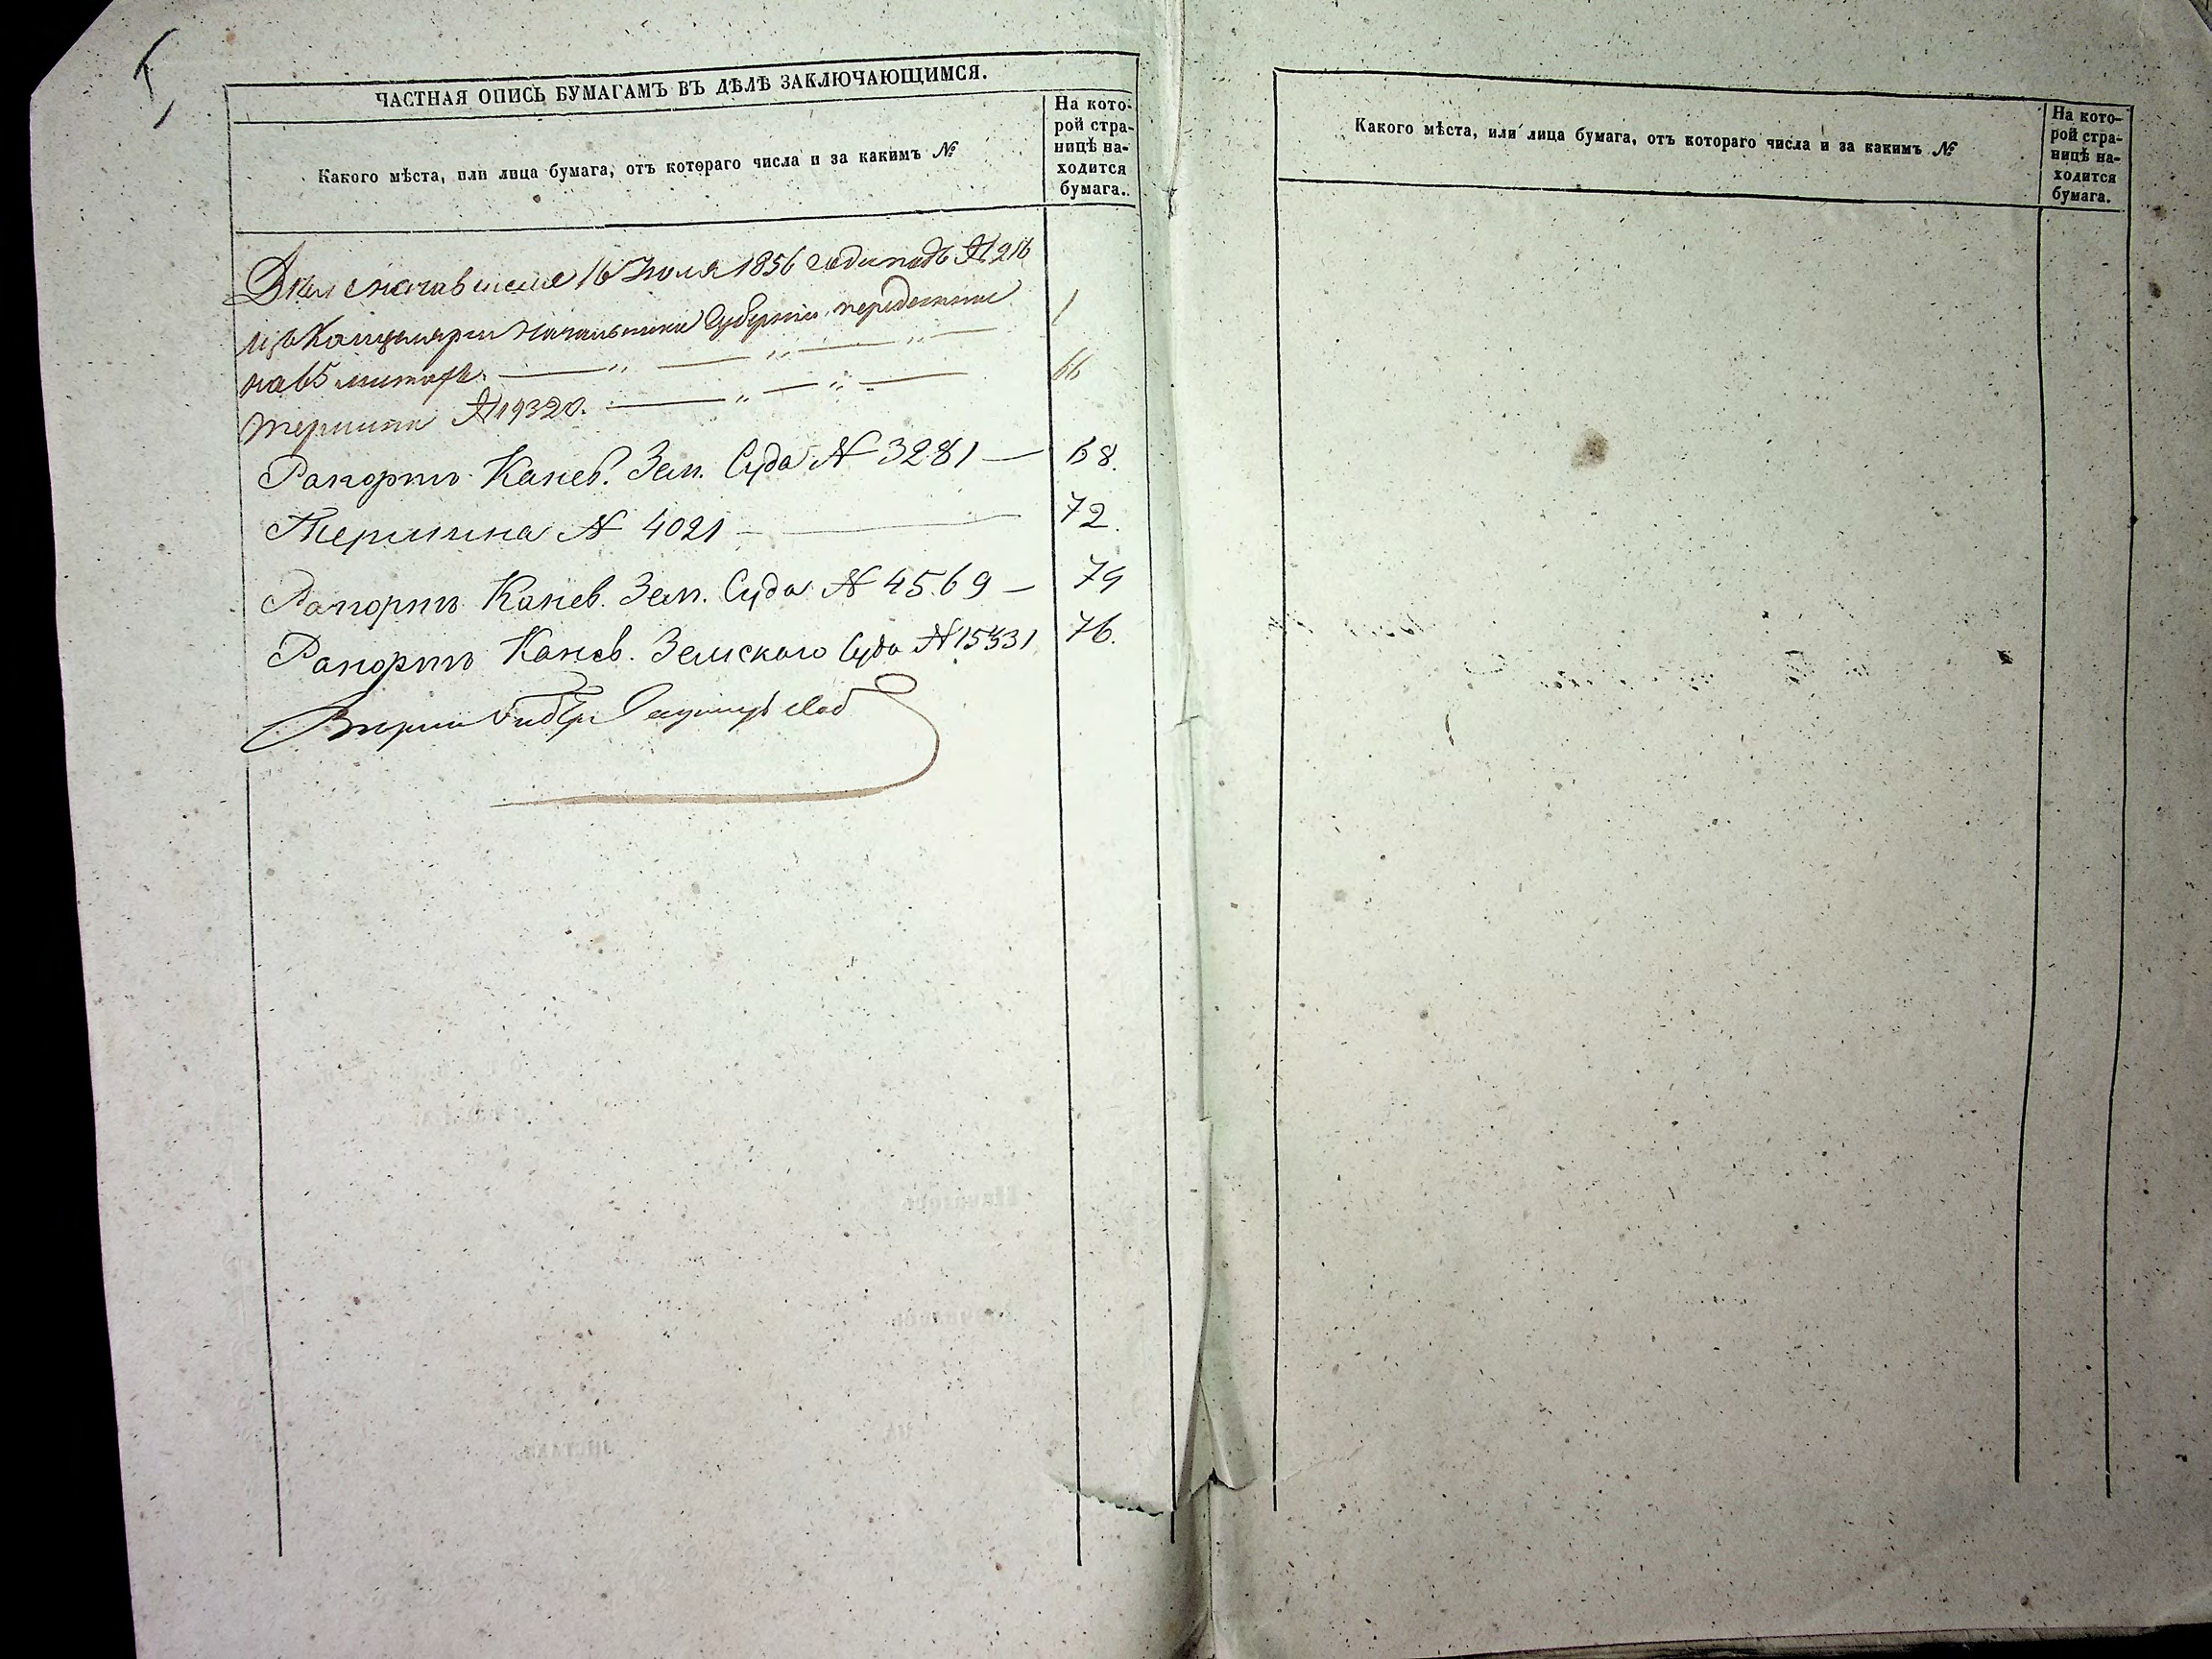 ЧАСТНАЯ ОПИСЬ БУМАГАМЪ ВЪ ДѢЛѢ ЗАКЛЮЧАЮЩИМСЯ.
Какого мѣста, или лица бумага, отъ котораго числа и за какимъ №
На кото-
рой стра-
ницѣ на-
ходится
бумага.
16 Іюля 1856 года подъ № 216
изъ Канцеляріи Начальника Губерніи переданное 1
на 65 листахъ.
Термина № 19320. 66
Рапортъ Канев. Зем. Суда № 3281 — 68.
Термина № 4021 — 72.
Рапортъ Канев. Зем. Суда № 4569 — 74
Рапортъ Канев. Земскаго Суда № 15331 76.
Какого мѣста, или лица бумага, отъ котораго числа и за какимъ №
На кото-
рой стра-
ницѣ на-
ходится
бумага.